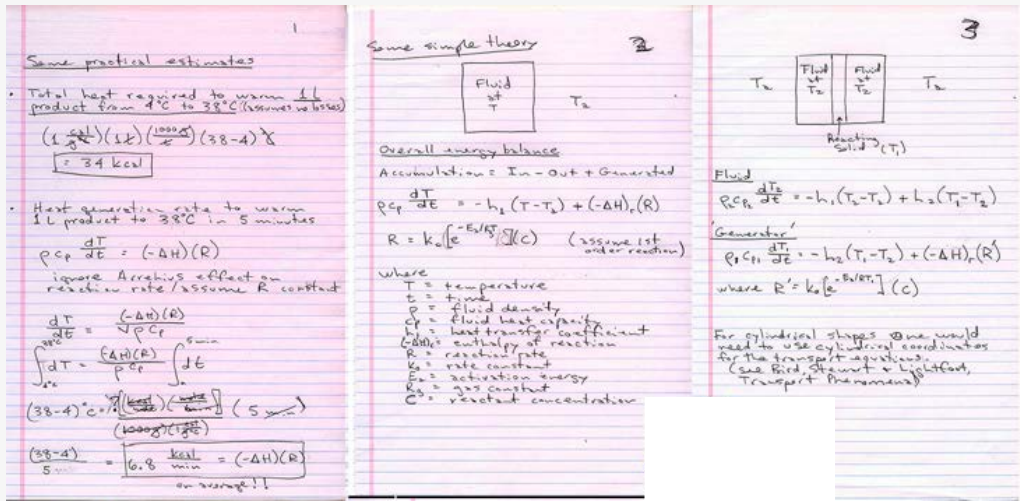 1
Some practical estimates
• Total heat required to warm 1 L
product from 4°C to 38°C (assumes no losses)
(1 cal/g°C)(1 L)(1000 g/L)(38-4)°C
= 34 kcal
• Heat generation rate to warm
1 L product to 38°C in 5 minutes
ρ cp dT/dt = (-ΔH)(R)
ignore Arrehius effect on
reaction rate/assume R constant
dT/dt = (-ΔH)(R) / Vρ cp
∫ dT = (-ΔH)(R) / ρ cp ∫ dt
38°C
4°C
5 min
(38-4)°C =
(5 min)
(1000g)
(38-4) / 5 = 6.8 kcal/min = (-ΔH)(R)
on average!!
2
Some simple theory
Fluid
at
T
T2
Overall energy balance
Accumulation = In - Out + Generated
ρ cp dT/dt = -h1 (T-T2) + (-ΔH)r (R)
R = k0 [e^(-Ea/RgT)] (C) (assume 1st
order reaction)
where
T = temperature
t = time
ρ = fluid density
cp = fluid heat capacity
h1 = heat transfer coefficient
(-ΔH)r = enthalpy of reaction
R = reaction rate
k0 = rate constant
Ea = activation energy
Rg = gas constant
C = reactant concentration
3
Fluid
at
T2
Fluid
at
T2
Reacting
Solid (T1)
Fluid
ρ cp2 dT2/dt = -h1 (T2-T2) + h2 (T1-T2)
'Generator'
ρ1 cp1 dT1/dt = -h2 (T1-T2) + (-ΔH)r (R')
where R' = k0 [e^(-Ea/RT1)] (C)
For cylindrical shapes one would
need to use cylindrical coordinates
for the transport equations.
(see Bird, Stewart & Lightfoot,
Transport Phenomena)